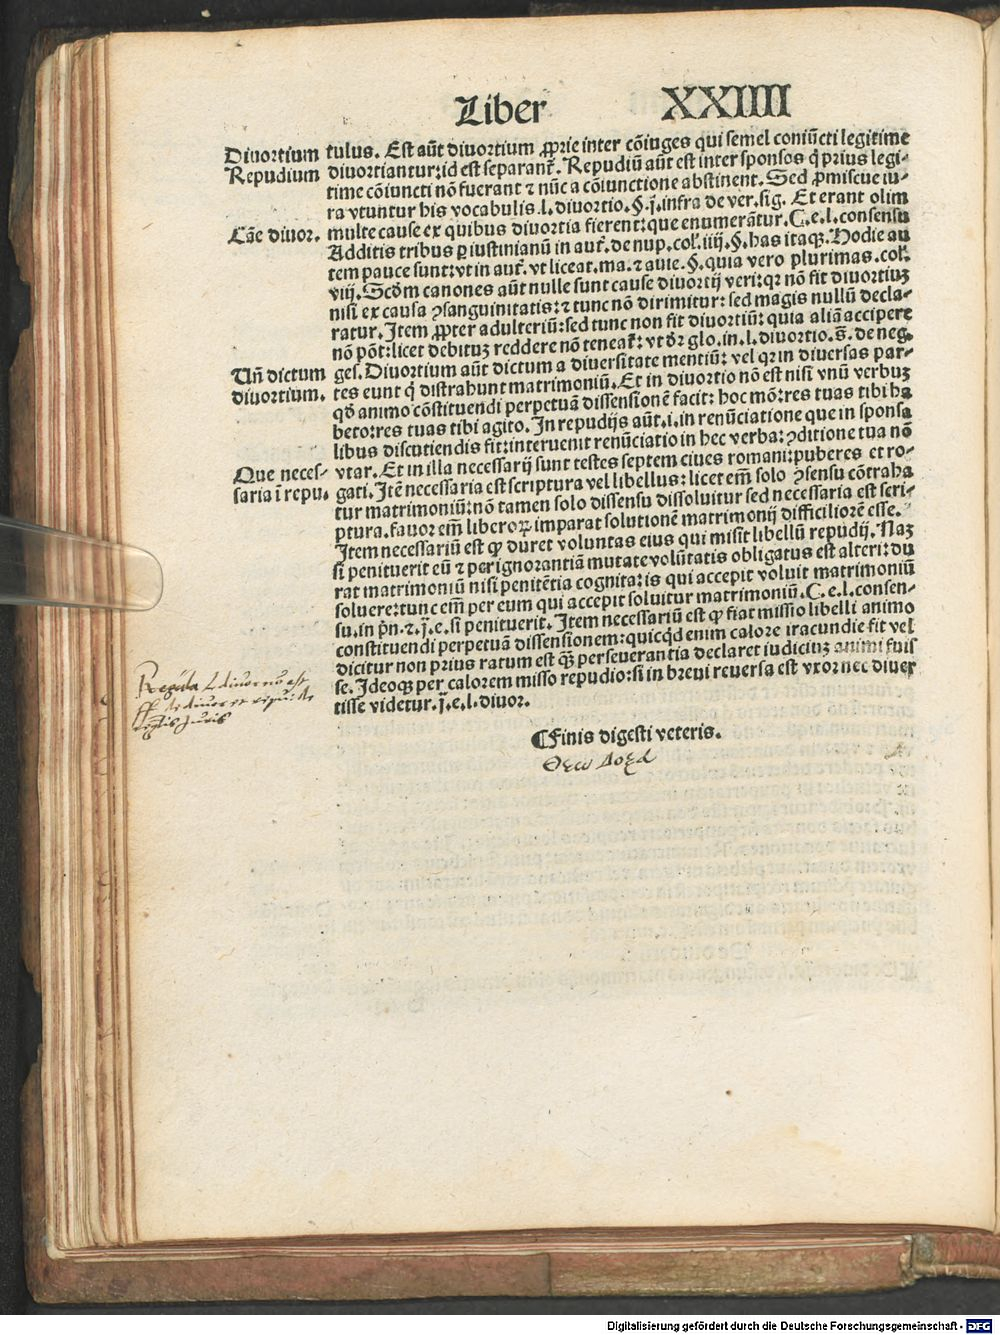 Liber XXIIII
Diuortium
Repudium
Cāe diuor.
Uñ dictum
diuortium.
Que neces-
saria ī repu.
tulus. Est aūt diuortium ꝓprie inter cōiuges qui semel coniūcti legitime
diuortiantur: id est separant᷑. Repudiū aūt est inter sponsos q̇ prius legi-
time cōiuncti nō fuerant ⁊ nūc a cōiunctione abstinent. Sed ꝓmiscue iu-
ra vtuntur his vocabulis. l. diuortio. §. j. infra de ver. sig. Et erant olim
multe cause ex quibus diuortia fierent: que enumerātur. C. e. l. consensu
Additis tribus ꝑ iustinianū in aut̄. de nup. col̄. iiij. §. has itaqꝫ. Hodie au
tem pauce sunt: vt in aut̄. vt liceat. ma. ⁊ auie. §. quia vero plurimas. col̄.
viij. Scd̄m canones aūt nulle sunt cause diuortij veri: qꝛ nō fit diuortiuꝫ
nisi ex causa ꝯsanguinitatis: ⁊ tunc nō dirimitur: sed magis nullū decla-
ratur. Item ꝓpter adulteriū: sed tunc non fit diuortiū: quia aliā accipere
nō pōt: licet debituꝫ reddere nō teneat᷑: vt dr̄ glo. in. l. diuortio. s̄. de neg.
ges. Diuortium aūt dictum a diuersitate mentiū: vel qꝛ in diuersas par-
tes eunt q̇ distrahunt matrimoniū. Et in diuortio nō est nisi vnū verbuꝫ
qd̄ animo cōstituendi perpetuā dissensionē facit: hoc mō: res tuas tibi ha
beto: res tuas tibi agito. In repudijs aūt. i. in renūciatione que in sponsa
libus discutiendis fit: interuenit renūciatio in hec verba: ꝯditione tua nō
vtar. Et in illa necessarij sunt testes septem ciues romani: puberes et ro-
gati. Itē necessaria est scriptura vel libellus: licet em̄ solo ꝯsensu cōtraha
tur matrimoniū: nō tamen solo dissensu dissoluitur sed necessaria est scri-
ptura. fauor em̄ liberoꝝ imparat solutionē matrimonij difficiliorē esse.
Item necessariū est ꝙ duret voluntas eius qui misit libellū repudij. Naꝫ
si penituerit eū ⁊ per ignorantiā mutate volūtatis obligatus est alteri: du
rat matrimoniū nisi penitētia cognita: is qui accepit voluit matrimoniū
soluere: tunc em̄ per eum qui accepit soluitur matrimoniū. C. e. l. consen-
su. in pn̄. ⁊. j̄. e. si penituerit. Item necessariū est ꝙ fiat missio libelli animo
constituendi perpetuā dissensionem: quicqd̄ enim calore iracundie fit vel
dicitur non prius ratum est qꝫ̄ perseuerantia declaret iudiciuꝫ animi fuis
se. Ideoqꝫ per calorem misso repudio: si in breui reuersa est vxor nec diuer
tisse videtur. j̄. e. l. diuor.
¶Finis digesti veteris.
Θεω Δοξα